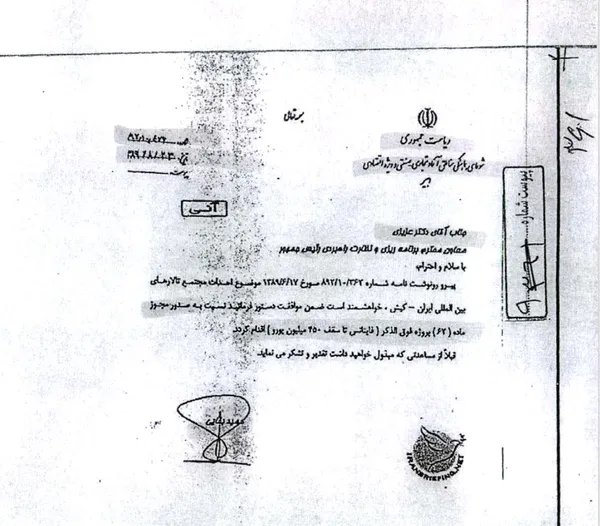 بسمه تعالی
ریاست جمهوری
شورای هماهنگی مناطق آزاد تجاری صنعتی و ویژه اقتصادی
دبیر
آنی
پیوست شماره
جناب آقای دکتر عزیزی
معاون محترم برنامه ریزی و نظارت راهبردی رئیس جمهور
با سلام و احترام،
پیرو رونوشت نامه شماره ۸۹۲/۱۰/۳۶۲ مورخ ۱۳۸۹/۶/۱۷ موضوع احداث مجتمع تالارهای
بین المللی ایران – کیش ، خواهشمند است ضمن موافقت دستور فرمائید نسبت به صدور مجوز
ماده (۶۲) پروژه فوق الذکر ( فاینانس تا سقف ۴۵۰ میلیون یورو ) اقدام گردد.
قبلاً از مساعدتی که مبذول خواهید داشت تقدیر و تشکر می نماید.
IRANBRIEFING.NET